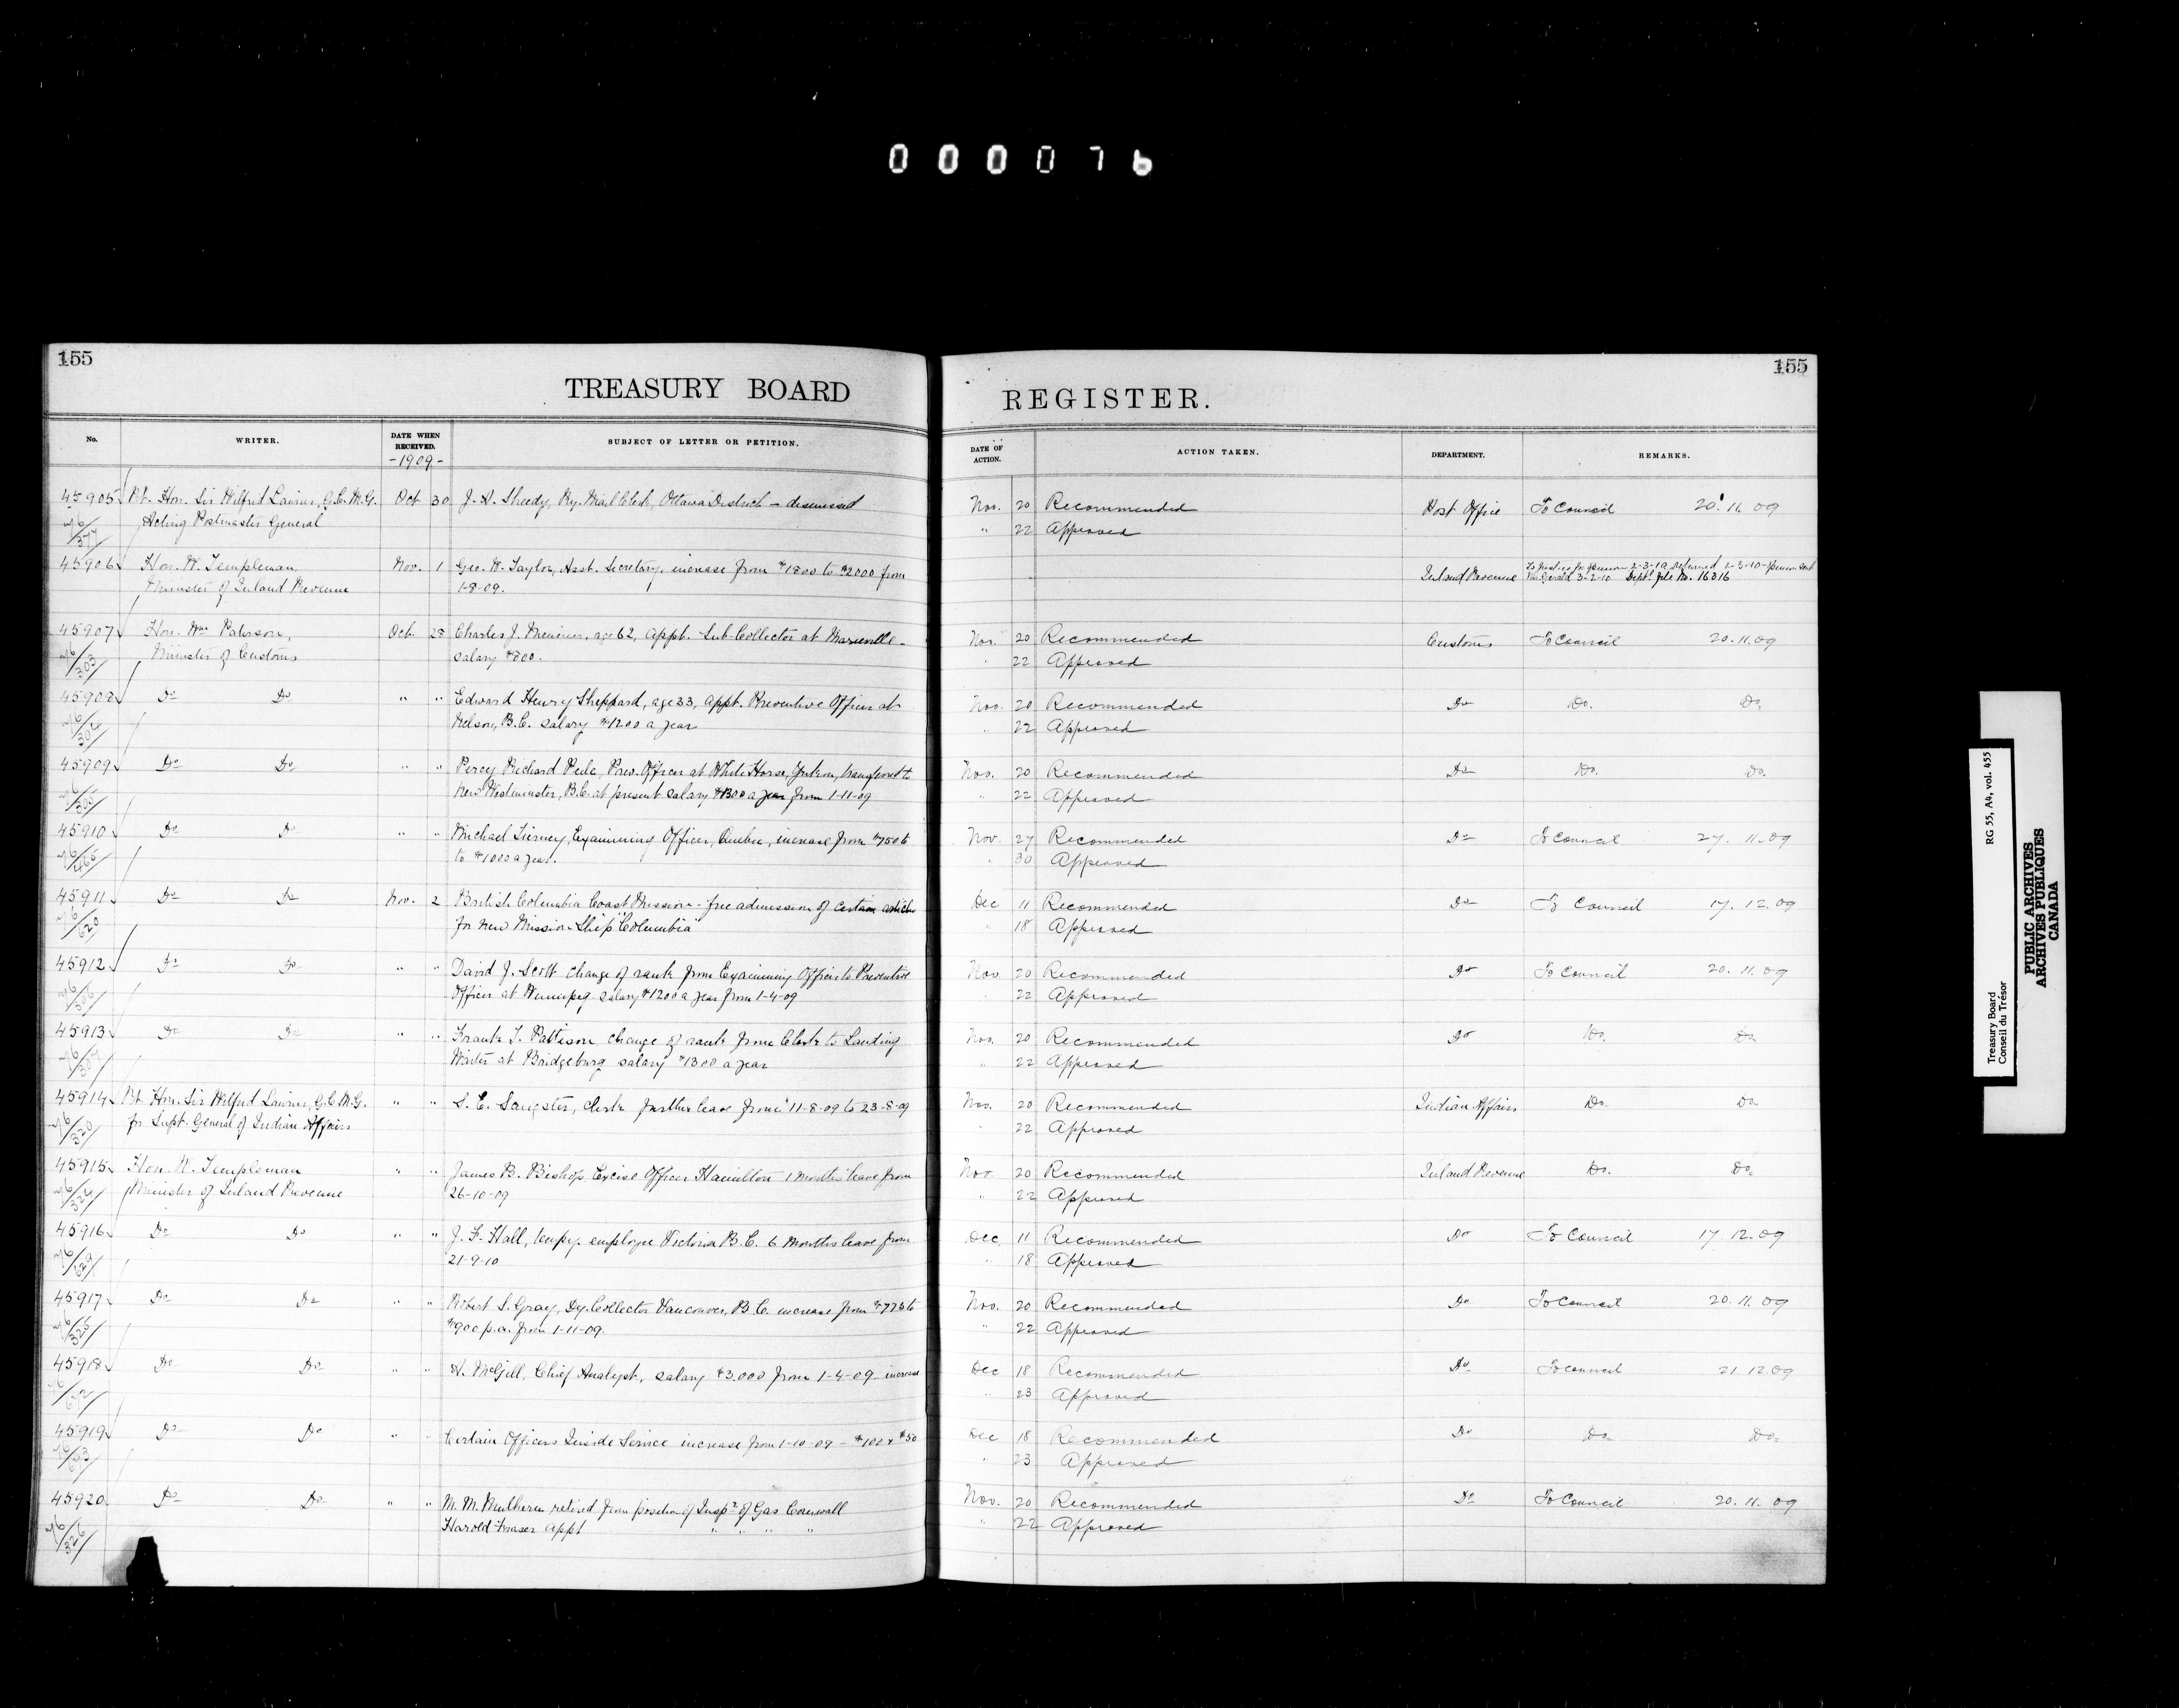 000076
155
155
TREASURY BOARD
REGISTER.
No.
WRITER.
DATE WHEN RECEIVED.
SUBJECT OF LETTER OR PETITION.
DATE OF ACTION.
ACTION TAKEN.
DEPARTMENT.
REMARKS.
-1909-
45905 Rt. Hon. Sir Wilfrid Laurier, G.C.M.G. Oct 30 J. A. Sheedy, Ry. Mail Clerk, Ottawa District - dismissed Nov. 20 Recommended Post Office To Council 20.11.09
Acting Postmaster General " 22 Approved
45906 Hon. W. Templeman, Nov. 1 Geo. W. Taylor, Asst. Secretary, increase from $1800 to $2000 from Inland Revenue
Minister of Inland Revenue 1-8-09. Deptl. file No. 16316
45907 Hon. Wm Paterson, Oct. 28 Charles J. age 62, appt. Sub-Collector at Marieville - Nov. 20 Recommended Customs To Council 20.11.09
Minister of Customs salary $800. " 22 Approved
45908 Do Do " " Edward Henry Sheppard, age 33, appt. Preventive Officer at Nov. 20 Recommended Do Do. Do.
Nelson, B.C. salary $1200 a year " 22 Approved
45909 Do Do " " Percy Richard Peele, Prev. Officer at White Horse, Yukon, transferred to Nov. 20 Recommended Do Do. Do.
New Westminster, B.C. at present salary $1300 a year from 1-11-09 " 22 Approved
45910 Do Do " " Michael Tierney, Examining Officer, Quebec, increase from $750 to Nov. 27 Recommended Do To Council 27.11.09
to $1000 a year. " 30 Approved
45911 Do Do Nov. 2 British Columbia Coast Mission - free admission of certain articles Dec 11 Recommended Do To Council 17.12.09
for new Mission Ship "Columbia" " 18 Approved
45912 Do Do " " David J. Scott change of rank from Examining Officer to Preventive Nov. 20 Recommended Do To Council 20.11.09
Officer at Winnipeg salary $1200 a year from 1-4-09 " 22 Approved
45913 Do Do " " Frank T. Pattison change of rank from Clerk to Landing Nov. 20 Recommended Do Do. Do.
Waiter at Bridgeburg salary $1300 a year " 22 Approved
45914 Rt. Hon. Sir Wilfrid Laurier, G.C.M.G. " " S. E. Sangster, clerk further leave from 11-8-09 to 23-8-09 Nov. 20 Recommended Indian Affairs Do. Do.
for Supt. General of Indian Affairs " 22 Approved
45915 Hon. W. Templeman " " James B. Bishop, Excise Officer Hamilton 1 months leave from Nov. 20 Recommended Inland Revenue Do. Do.
Minister of Inland Revenue 26-10-09 " 22 Approved
45916 Do Do " " J. F. Hall, tempy. employee Victoria B.C. 6 months leave from Dec 11 Recommended Do To Council 17.12.09
21-9-10 " 18 Approved
45917 Do Do " " Robert S. Gray, Dy. Collector Vancouver, B.C. increase from $775 to Nov. 20 Recommended Do To Council 20.11.09
$900 p.a. from 1-11-09. " 22 Approved
45918 Do Do " " A. McGill, Chief Analyst, salary $3,000 from 1-4-09 - increase Dec 18 Recommended Do To Council 21.12.09
" 23 Approved
45919 Do Do " " Certain Officers Inside Service increase from 1-10-09 - $100 & $50 Dec 18 Recommended Do Do. Do.
" 23 Approved
45920 Do Do " " M. M. Mulhern retired from position of Inspr. of Gas Cornwall Nov. 20 Recommended Do To Council 20.11.09
Harold Fraser appt " " " " " 22 Approved
Treasury Board RG 55, A4, vol. 455
Conseil du Trésor
PUBLIC ARCHIVES
ARCHIVES PUBLIQUES
CANADA